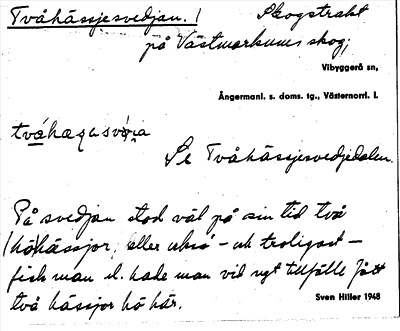 Tvåhässjesvedjan. Skogstrakt
på Västmarkums skog,
Vibyggerå sn,
Ångermanl. s. doms. tg., Västernorrl. l.
Se Tvåhässjesvedjedalen.
På svedjan stod väl på sin tid två
höhässjor, eller också – och troligast –
fick man el. hade man vid ngt tillfälle fått
två hässjor hö här.
Sven Hiller 1948